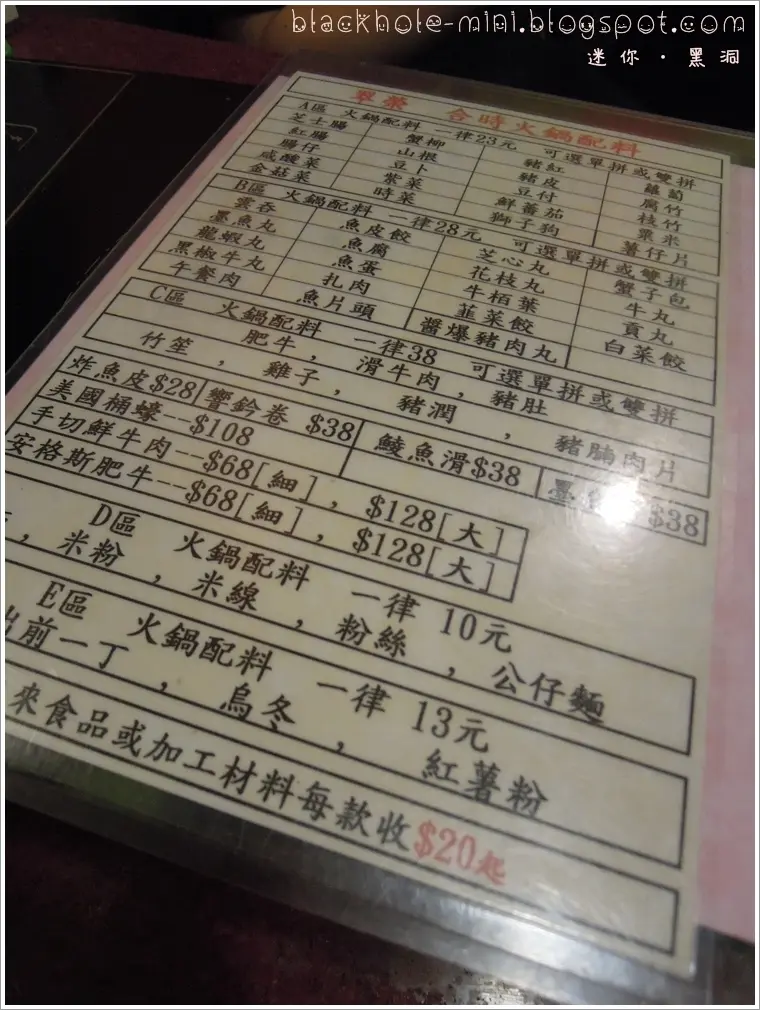 blackhole-mini.blogspot.com
迷你·黑洞
翠榮 合時火鍋配料
A區 火鍋配料 一律23元 可選單拼或雙拼
芝士腸 蟹柳 豬紅 蘿蔔
紅腸 山根 豬皮 腐竹
腸仔 豆卜 豆付 枝竹
咸酸菜 紫菜 鮮蕃茄 粟米
金菇菜 時菜 獅子狗 薯仔片
B區 火鍋配料 一律28元 可選單拼或雙拼
雲吞 魚皮餃 芝心丸 蟹子包
墨魚丸 魚腐 花枝丸 牛丸
龍蝦丸 魚蛋 牛栢葉 貢丸
黑椒牛丸 扎肉 韮菜餃 白菜餃
午餐肉 魚片頭 醬爆豬肉丸
C區 火鍋配料 一律38 可選單拼或雙拼
肥牛, 滑牛肉, 豬肚
竹笙, 雞子, 豬潤, 豬腩肉片
炸魚皮$28 響鈴卷 $38 鯪魚滑$38 墨 $38
美國桶蠔--$108
手切鮮牛肉--$68[細], $128[大]
安格斯肥牛--$68[細], $128[大]
D區 火鍋配料 一律 10元
, 米粉, 米線, 粉絲, 公仔麵
E區 火鍋配料 一律 13元
出前一丁, 烏冬, 紅薯粉
來食品或加工材料每款收$20起